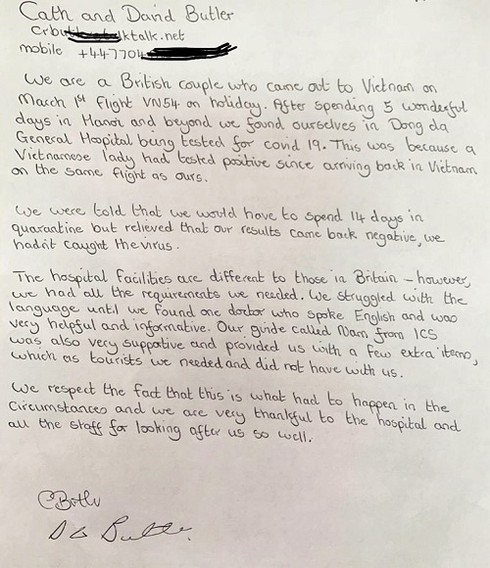 Cath and David Butler
crbu ktalk.net
mobile +447704
We are a British couple who came out to Vietnam on
March 1st flight VN54 on holiday. After spending 5 wonderful
days in Hanoi and beyond we found ourselves in Dong da
General Hospital being tested for covid 19. This was because a
Vietnamese lady had tested positive since arriving back in Vietnam
on the same flight as ours.
We were told that we would have to spend 14 days in
quarantine but relieved that our results came back negative, we
hadn't caught the virus.
The hospital facilities are different to those in Britain – however,
we had all the requirements we needed. We struggled with the
language until we found one doctor who spoke English and was
very helpful and informative. Our guide called Nam from ICS
was also very supportive and provided us with a few extra items,
which as tourists we needed and did not have with us.
We respect the fact that this is what had to happen in the
circumstances and we are very thankful to the hospital and
all the staff for looking after us so well.